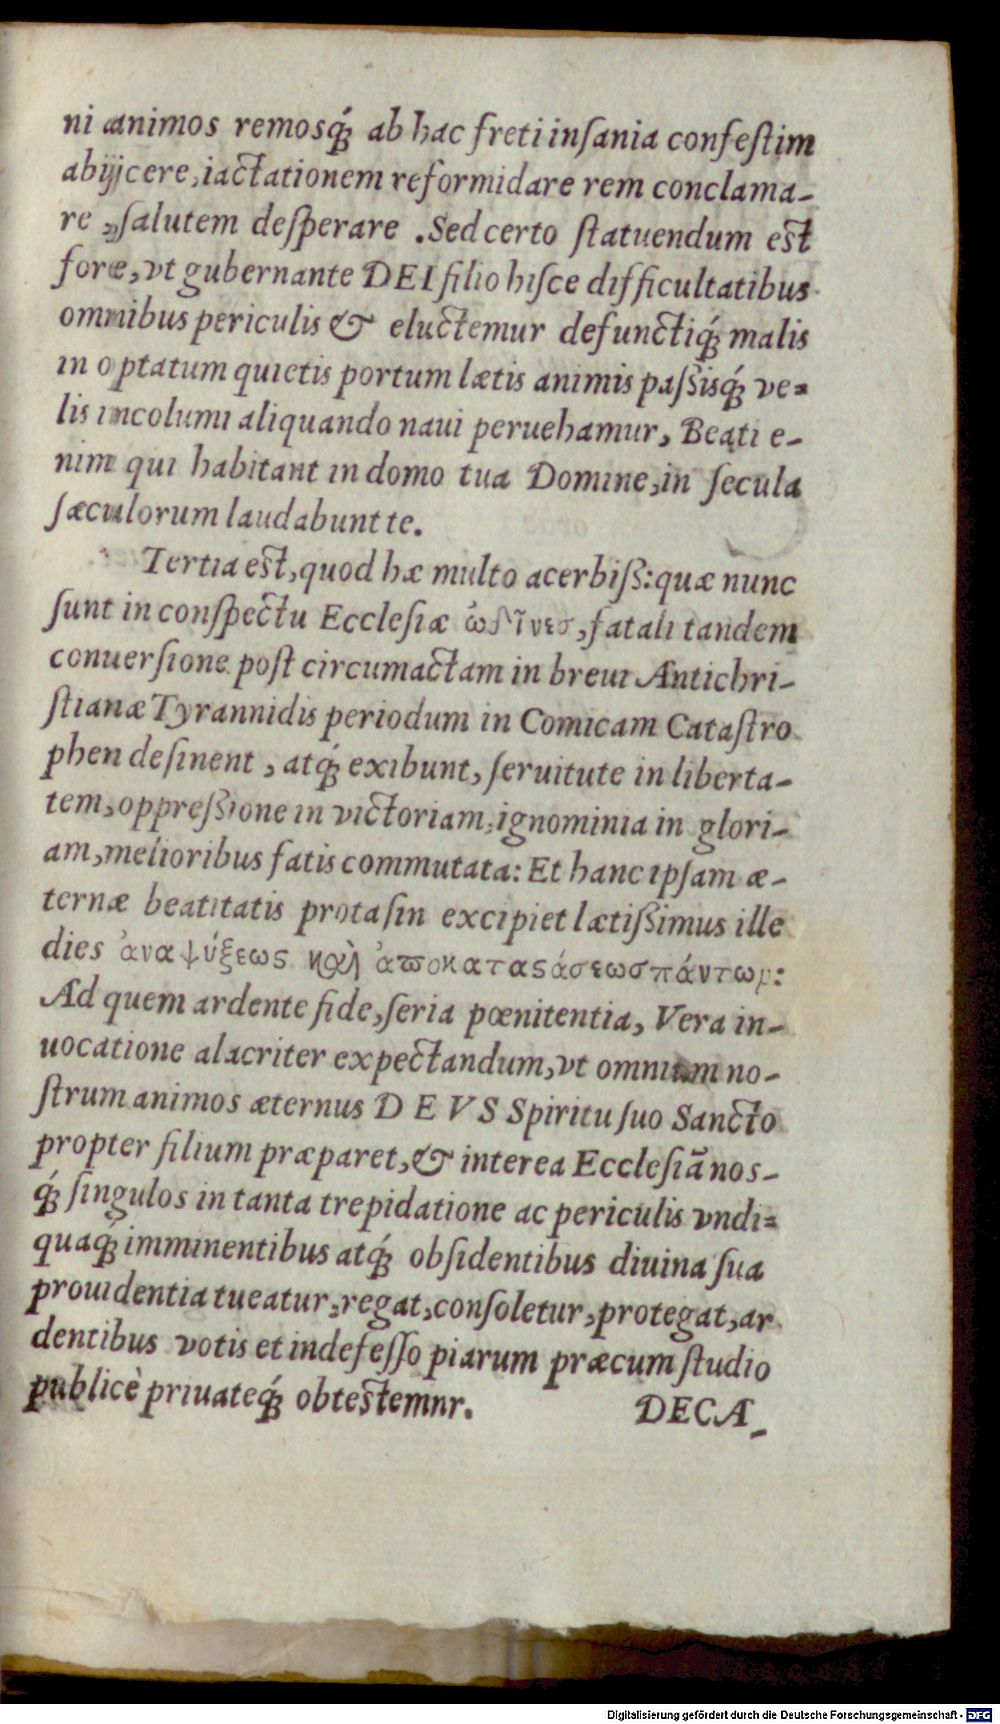 ni animos remosq́; ab hac freti inſania confeſtim
abijcere, iactationem reformidare rem conclama-
re, ſalutem deſperare. Sed certo ſtatuendum eſt
fore, vt gubernante DEI filio hiſce difficultatibus
omnibus periculis & eluctemur defunctiq́; malis
in optatum quietis portum lætis animis paſsisq́; ve-
lis incolumi aliquando naui peruehamur, Beati e-
nim qui habitant in domo tua Domine, in ſecula
ſæculorum laudabunt te.
Tertia eſt, quod hæ multo acerbiſs: quæ nunc
ſunt in conſpectu Eccleſiæ ὠδῖνεσ, fatali tandem
conuerſione post circumactam in breui Antichri-
ſtianæ Tyrannidis periodum in Comicam Cataſtro
phen deſinent, atq́; exibunt, ſeruitute in liberta-
tem, oppreſsione in victoriam, ignominia in glori-
am, melioribus fatis commutata: Et hanc ipſam æ-
ternæ beatitatis protaſin excipiet lætiſsimus ille
dies ἀναψύξεως καὶ ἀποκαταϛάσεωσ πάντων:
Ad quem ardente fide, ſeria pœnitentia, Vera in-
uocatione alacriter expectandum, vt omnium no-
ſtrum animos æternus DEVS Spiritu ſuo Sancto
propter filium præparet, & interea Eccleſiā nos-
q́; ſingulos in tanta trepidatione ac periculis vndi-
quaq́; imminentibus atq́; obſidentibus diuina ſua
prouidentia tueatur, regat, conſoletur, protegat, ar
dentibus votis et indefeſſo piarum præcum ſtudio
publicè priuateq́; obteſtemnr. DECA-
Digitalisierung gefördert durch die Deutsche Forschungsgemeinschaft - DFG